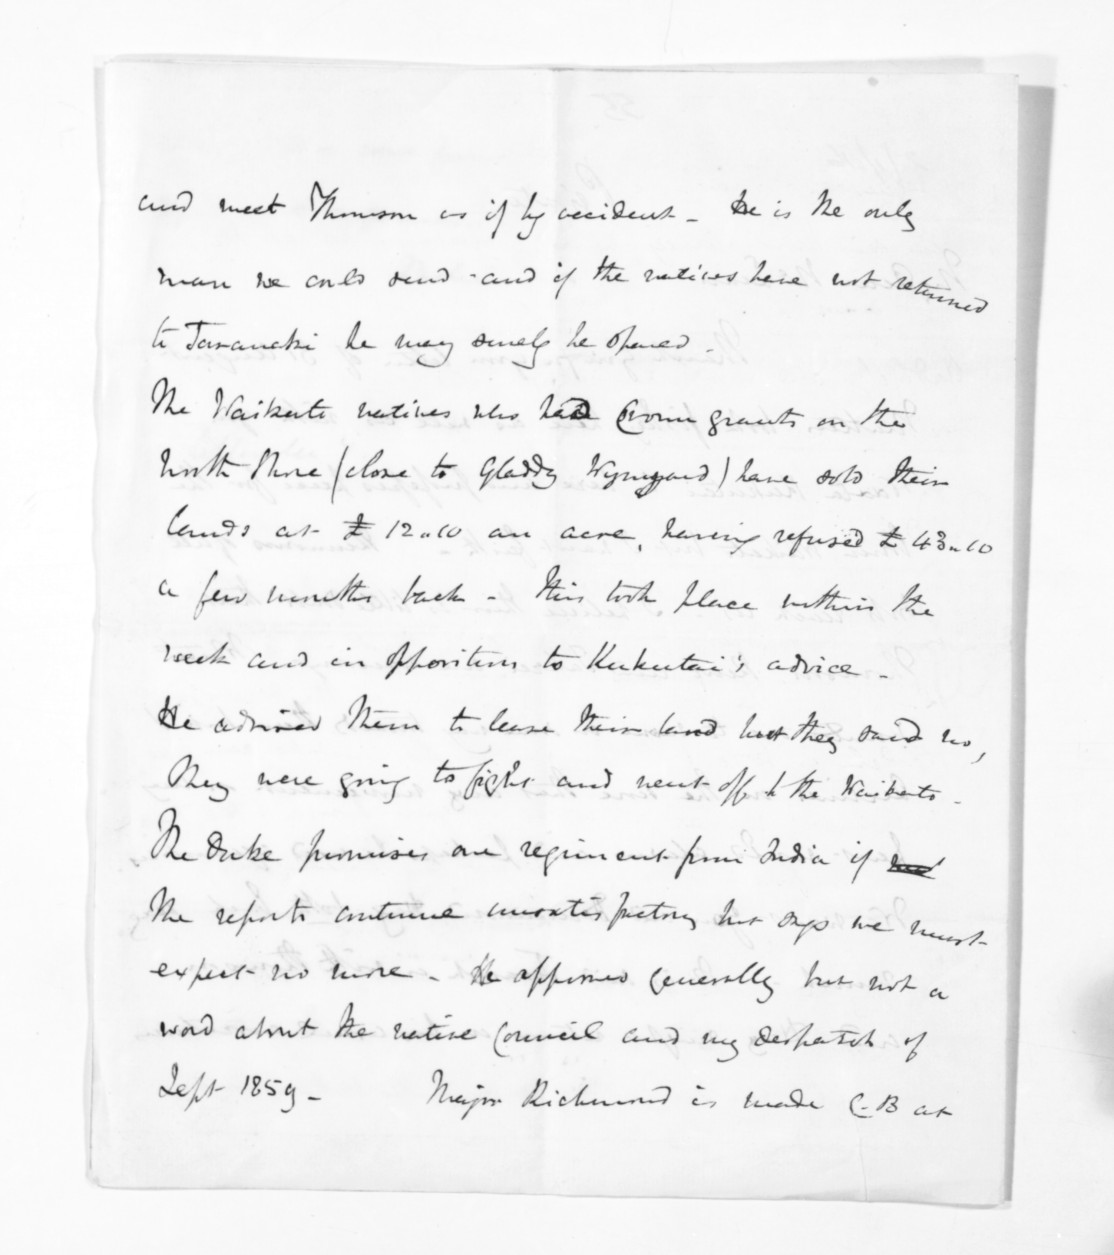 and meet Thomson as if by accident - He is the only
man we could send - and if the natives have not returned
to Taranaki he may surely be opened.
The Waikato natives who had Crown grants on the
North Shore (close to Gladdy Wynyard) have sold their
lands at £12..10 an acre, having refused £43..10
a few months back - This took place within the
week and in opposition to Kukutai's advice -
He advised them to lease their land but they said no,
They were going to fight and went off to the Waikato -
The Duke promises one regiment from India if
the reports continue unsatisfactory but says we must
expect no more - He approves generally but not a
word about the native Council and my despatch of
Sept 1859 - Major Richmond is made C-B at